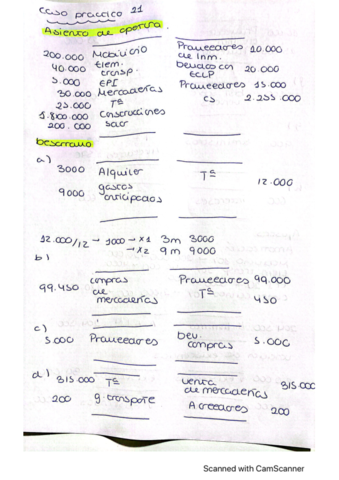 Caso practico 21
Asiento de apertura
200.000 Mobiliario Proveedores 10.000
de Inm.
40.000 Elem. transp. Deudas con 20.000
ECLP
5.000 EPI Proveedores 15.000
30.000 Mercaderias CS 2.255.000
25.000 Tª
1.800.000 Construcciones
200.000
Desarrollo
a)
3000 Alquiler Tª
12.000
9000 gastos anticipados
12.000/12 → 1000 → x1 3m 3000
→ x2 9m 9000
b)
99.450 compras de mercaderias Proveedores 99.000
Tª 450
c)
5.000 Proveedores dev. compras 5.000
d)
815.000 Tª venta de mercaderias 815.000
200 g. transporte Acreedores 200
Scanned with CamScanner